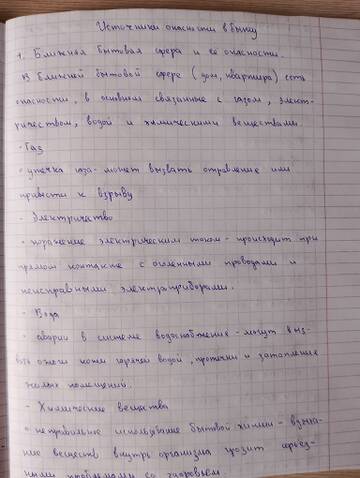 Источники опасности в быту
1. Ближняя бытовая сфера и ее опасности.
В ближней бытовой сфере (дом, квартира) есть
опасности, в основном связанные с газом, элект-
ричеством, водой и химическими веществами.
- Газ
• утечка газа - может вызвать отравление или
привести к взрыву
- Электричество
• поражение электрическим током - происходит при
прямом контакте с оголенными проводами и
неисправными электроприборами.
- Вода
• аварии в системе водоснабжения - могут выз-
вать ожоги кожи горячей водой, протечки и затопление
жилых помещений.
- Химические вещества
• неправильное использование бытовой химии -
ние веществ внутрь организма грозит серьез-
ными проблемами со здоровьем.